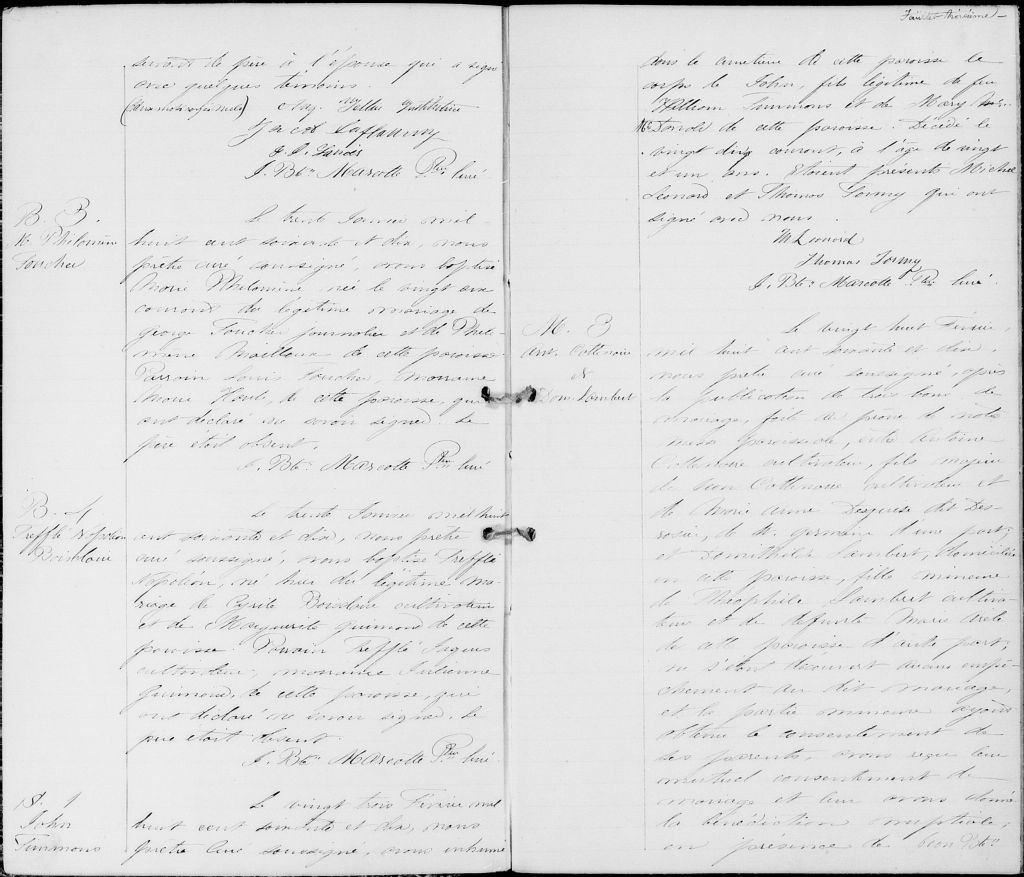 servant de père à l'épouse qui a signé
avec quelques témoins.
J. Bte Marcotte Ptre Curé
B. 3.
M. Philomène
Foucher
Le trente Janvier mil
huit cent soixante et dix, nous
prêtre curé soussigné, avons baptisé
Marie Philomène née le vingt
courant du légitime mariage de
George Foucher journalier et de Philo-
mène Mailloux de cette paroisse.
Parrain Louis Foucher, marraine
Marie Houle, de cette paroisse, qui
ont déclaré ne savoir signer. Le
père était absent.
J. Bte Marcotte Ptre Curé
B. 4
Trefflé Napoléon
Boisclair
Le trente Janvier mil huit
cent soixante et dix, nous prêtre
curé soussigné, avons baptisé Trefflé
Napoléon, né hier du légitime ma-
riage de Cyrile Boisclair cultivateur
et de Marguerite Guimond de cette
paroisse. Parrain Trefflé Jaques
cultivateur, marraine Julienne
Guimond, de cette paroisse, qui
ont déclaré ne savoir signer. Le
père était absent.
J. Bte Marcotte Ptre Curé
S. 1
John
Timmons
Le vingt trois Février mil
huit cent soixante et dix, nous
prêtre Curé soussigné, avons inhumé
Feuillet troisième
dans le cimetière de cette paroisse le
corps de John, fils légitime de feu
William Timmons et de Mary
de cette paroisse. Décédé le
vingt deux courant, à l'âge de vingt
et un ans. Etaient présents Michel
Leonard et Thomas Tormy qui ont
signé avec nous.
M Leonard
Thomas Tormy
J. Bte Marcotte Ptre Curé
M. 3
Ant. Coltenoire
et
Dom. Lambert
Le vingt huit Février,
mil huit cent soixante et dix,
nous prêtre curé soussigné, après
la publication de trois bans de
mariage, faite au prône de notre
messe paroissiale, entre Antoine
Coltenoire cultivateur, fils majeur
de Jean Coltenoire cultivateur et
de Marie Anne dit Des-
rosier, de St. Germain d'une part;
et Domithilde Lambert, domiciliée
en cette paroisse, fille mineure
de Théophile Lambert cultiva-
teur et de défunte Marie
de cette paroisse d'autre part;
ne s'étant découvert aucun empê-
chement au dit mariage,
et la partie mineure ayant
obtenu le consentement de
ses parents, avons reçu leur
mutuel consentement de
mariage et leur avons donné
la bénédiction nuptiale,
en présence de Jean Bte